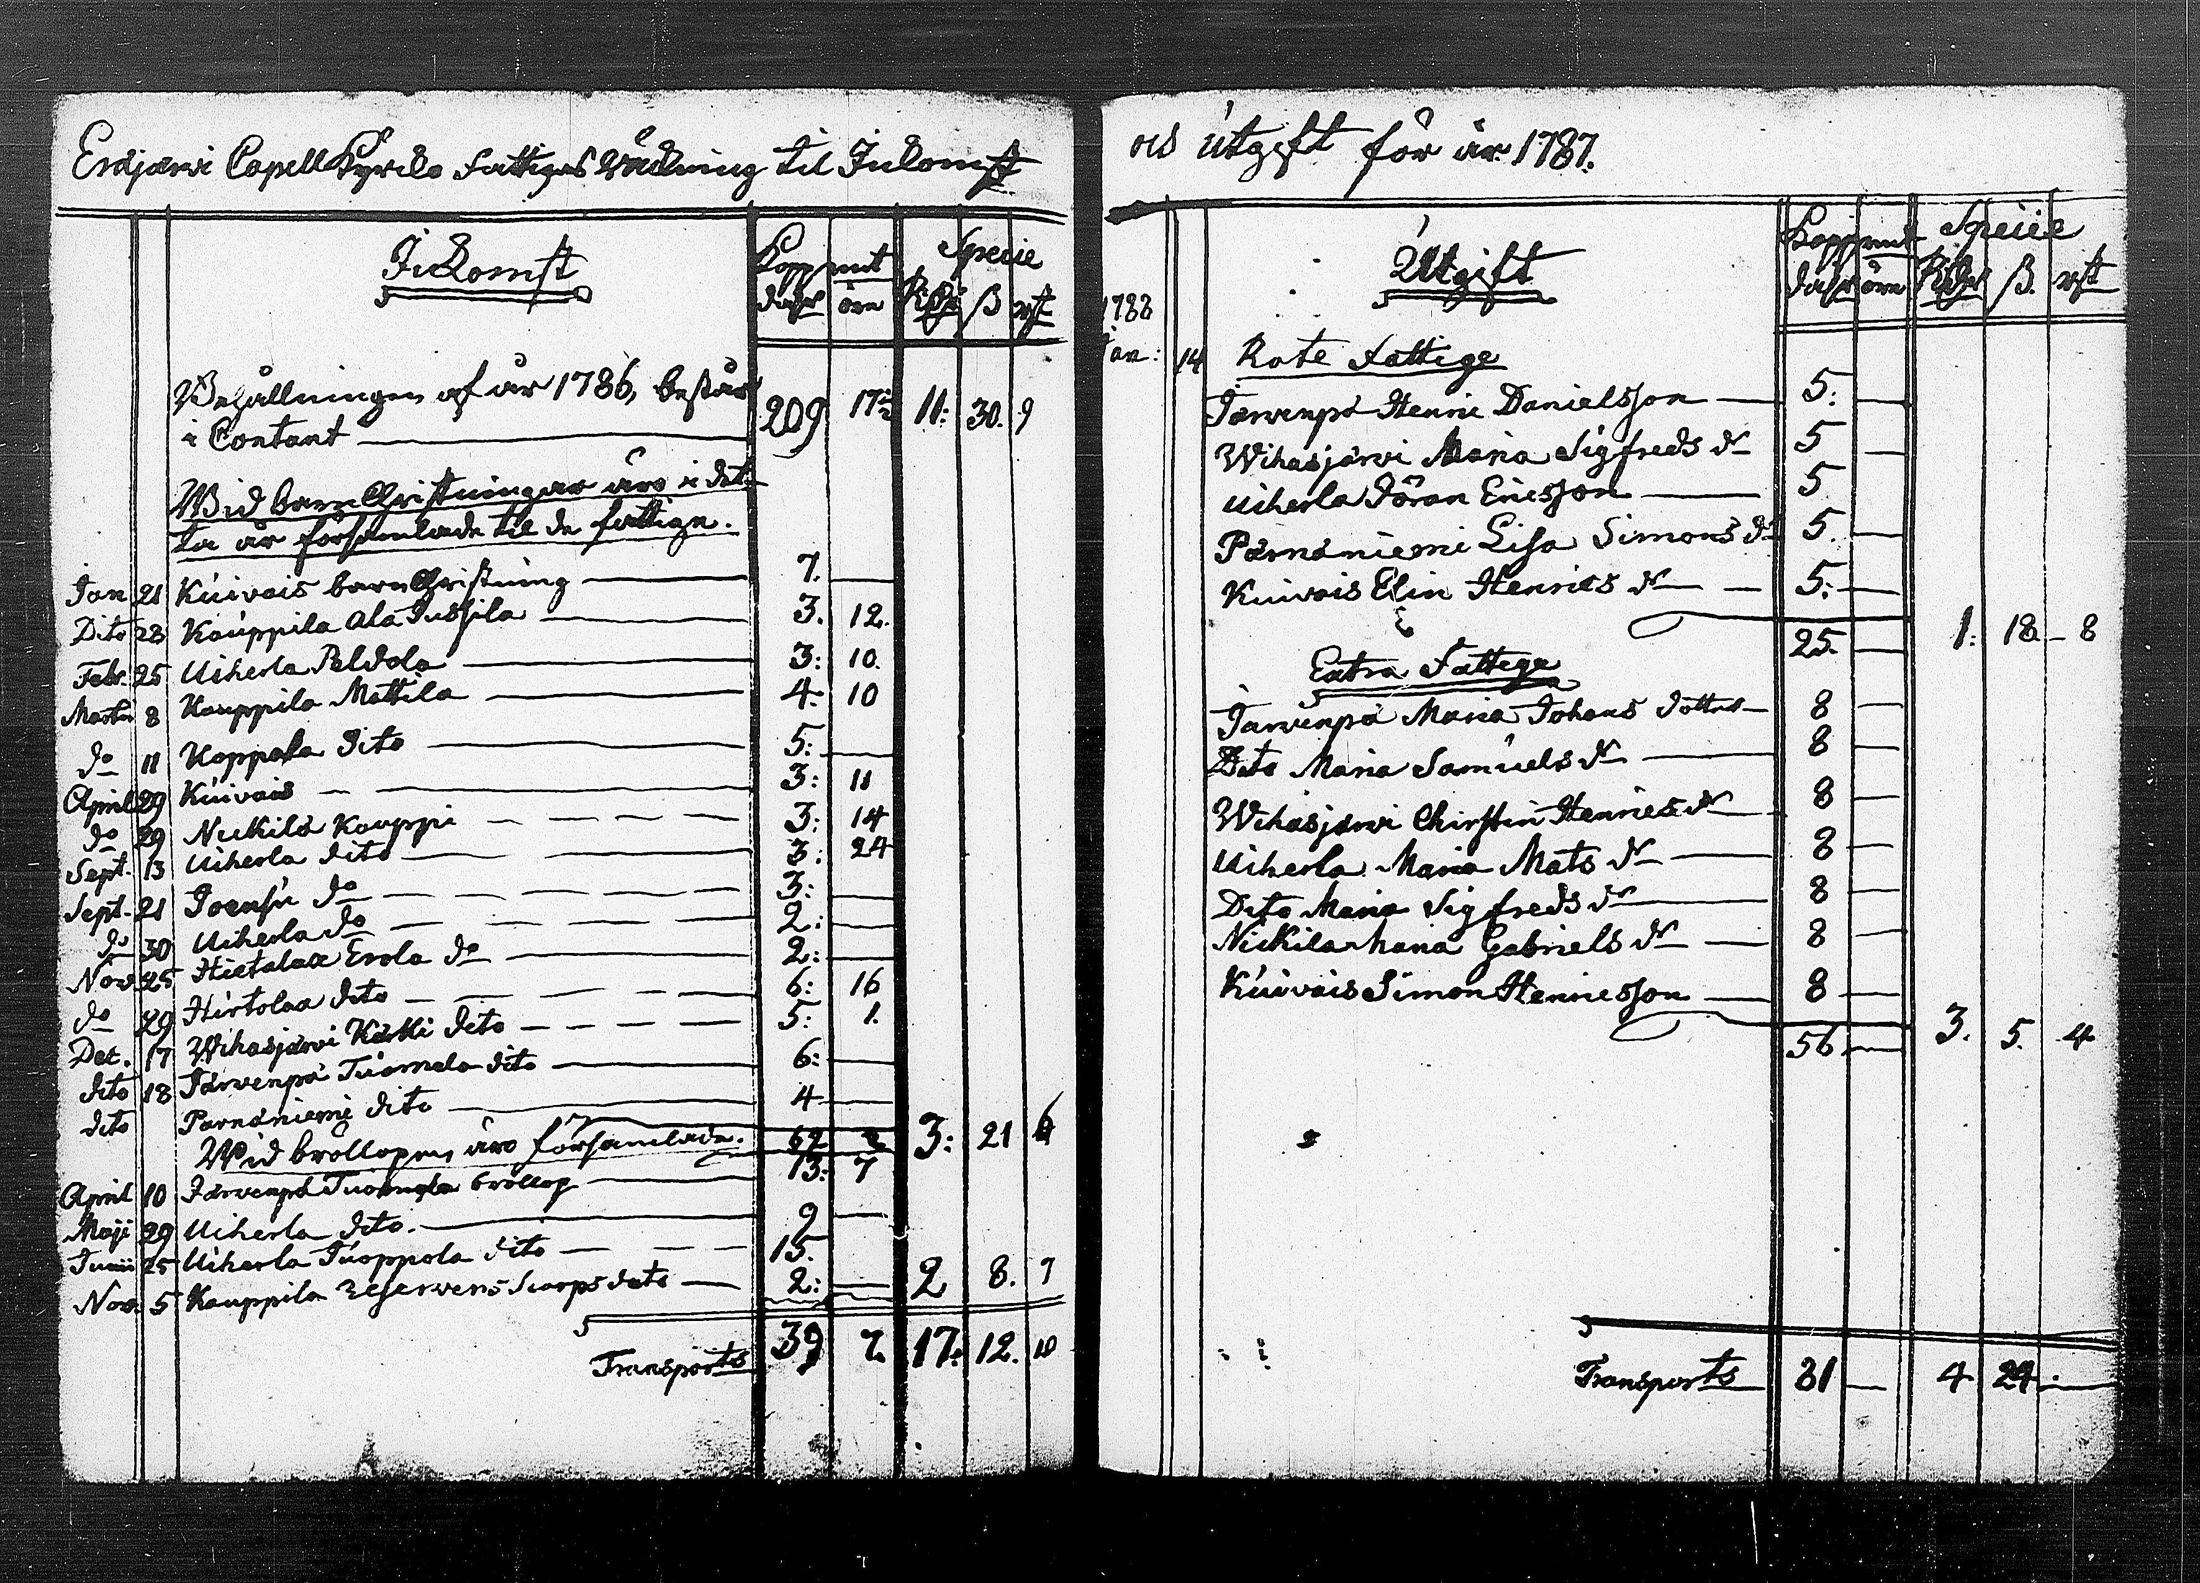 Eräjärvi Capell Kyrcko Fattigas Räckning til Inkomst
Inkomst
Kopp mt Specie
dahr öre Rdr ß rst
Behållningen af år 1786, består
i Contant 209 17½ 11: 30. 9
Wid barnChristningar äro i det-
ta år församlade til de fattiga.
Jan 21 Kuivais barnChristning 7.
Dito 28 Kauppila Ala Jussila 3. 12.
Febr. 25 Uiherla Peldola 3: 10.
Martii 8 Kauppila Mattila 4. 10
do 11 Koppala dito 5:
April 29 Kuivais 3: 11
do 29 Nickilä Kauppi 3: 14
Sept. 13 Uiherla dito 3: 24
Sept. 21 Joensu do 3:
do 30 Uiherla do 2:
Nov. 25 Hietalax Erola do 2:
do 29 Hirtolax dito 6: 16
Dec. 17 Wihasjärvi Kärki dito 5: 1.
dito 18 Järvenpä Tuomola dito 6:
dito Parnäniemi dito 4
Wid bröllopen äro församlade. 62 2 3: 21 6
April 10 Järvenpä Tuomola bröllop 13: 7
Maji 29 Uiherla dito. 9
Junii 25 Uiherla Tuoppola dito 15.
Nov. 5 Kauppila Reservens Scorps dito 2: 2 8. 7
Transports 39 7. 17: 12. 10
och Utgift för år 1787.
Utgift
Kopp mt Specie
dahr öre Rdr ß. rst
1788
Jan: 14 Rote Fattige
Järvenpä Henric Danielsson 5:
Wihasjärvi Maria Sigfreds dr 5
Uiherla Jöran Ericsson 5
Pärnäniemi Lisa Simons dr 5.
Kuivais Elin Henrics dr 5:
25. 1: 18 8
Extra Fattige
Järvenpä Maria Johans dotter 8
Dito Maria Samuels dr 8
Wihasjärvi Chirstin Henrics dr 8
Uiherla Maria Mats dr 8
Dito Maria Sigfreds dr 8
Nickila Maria Gabriels dr 8
Kuivais Simon Henricsson 8
56 3. 5. 4
Transports 81 4 24.